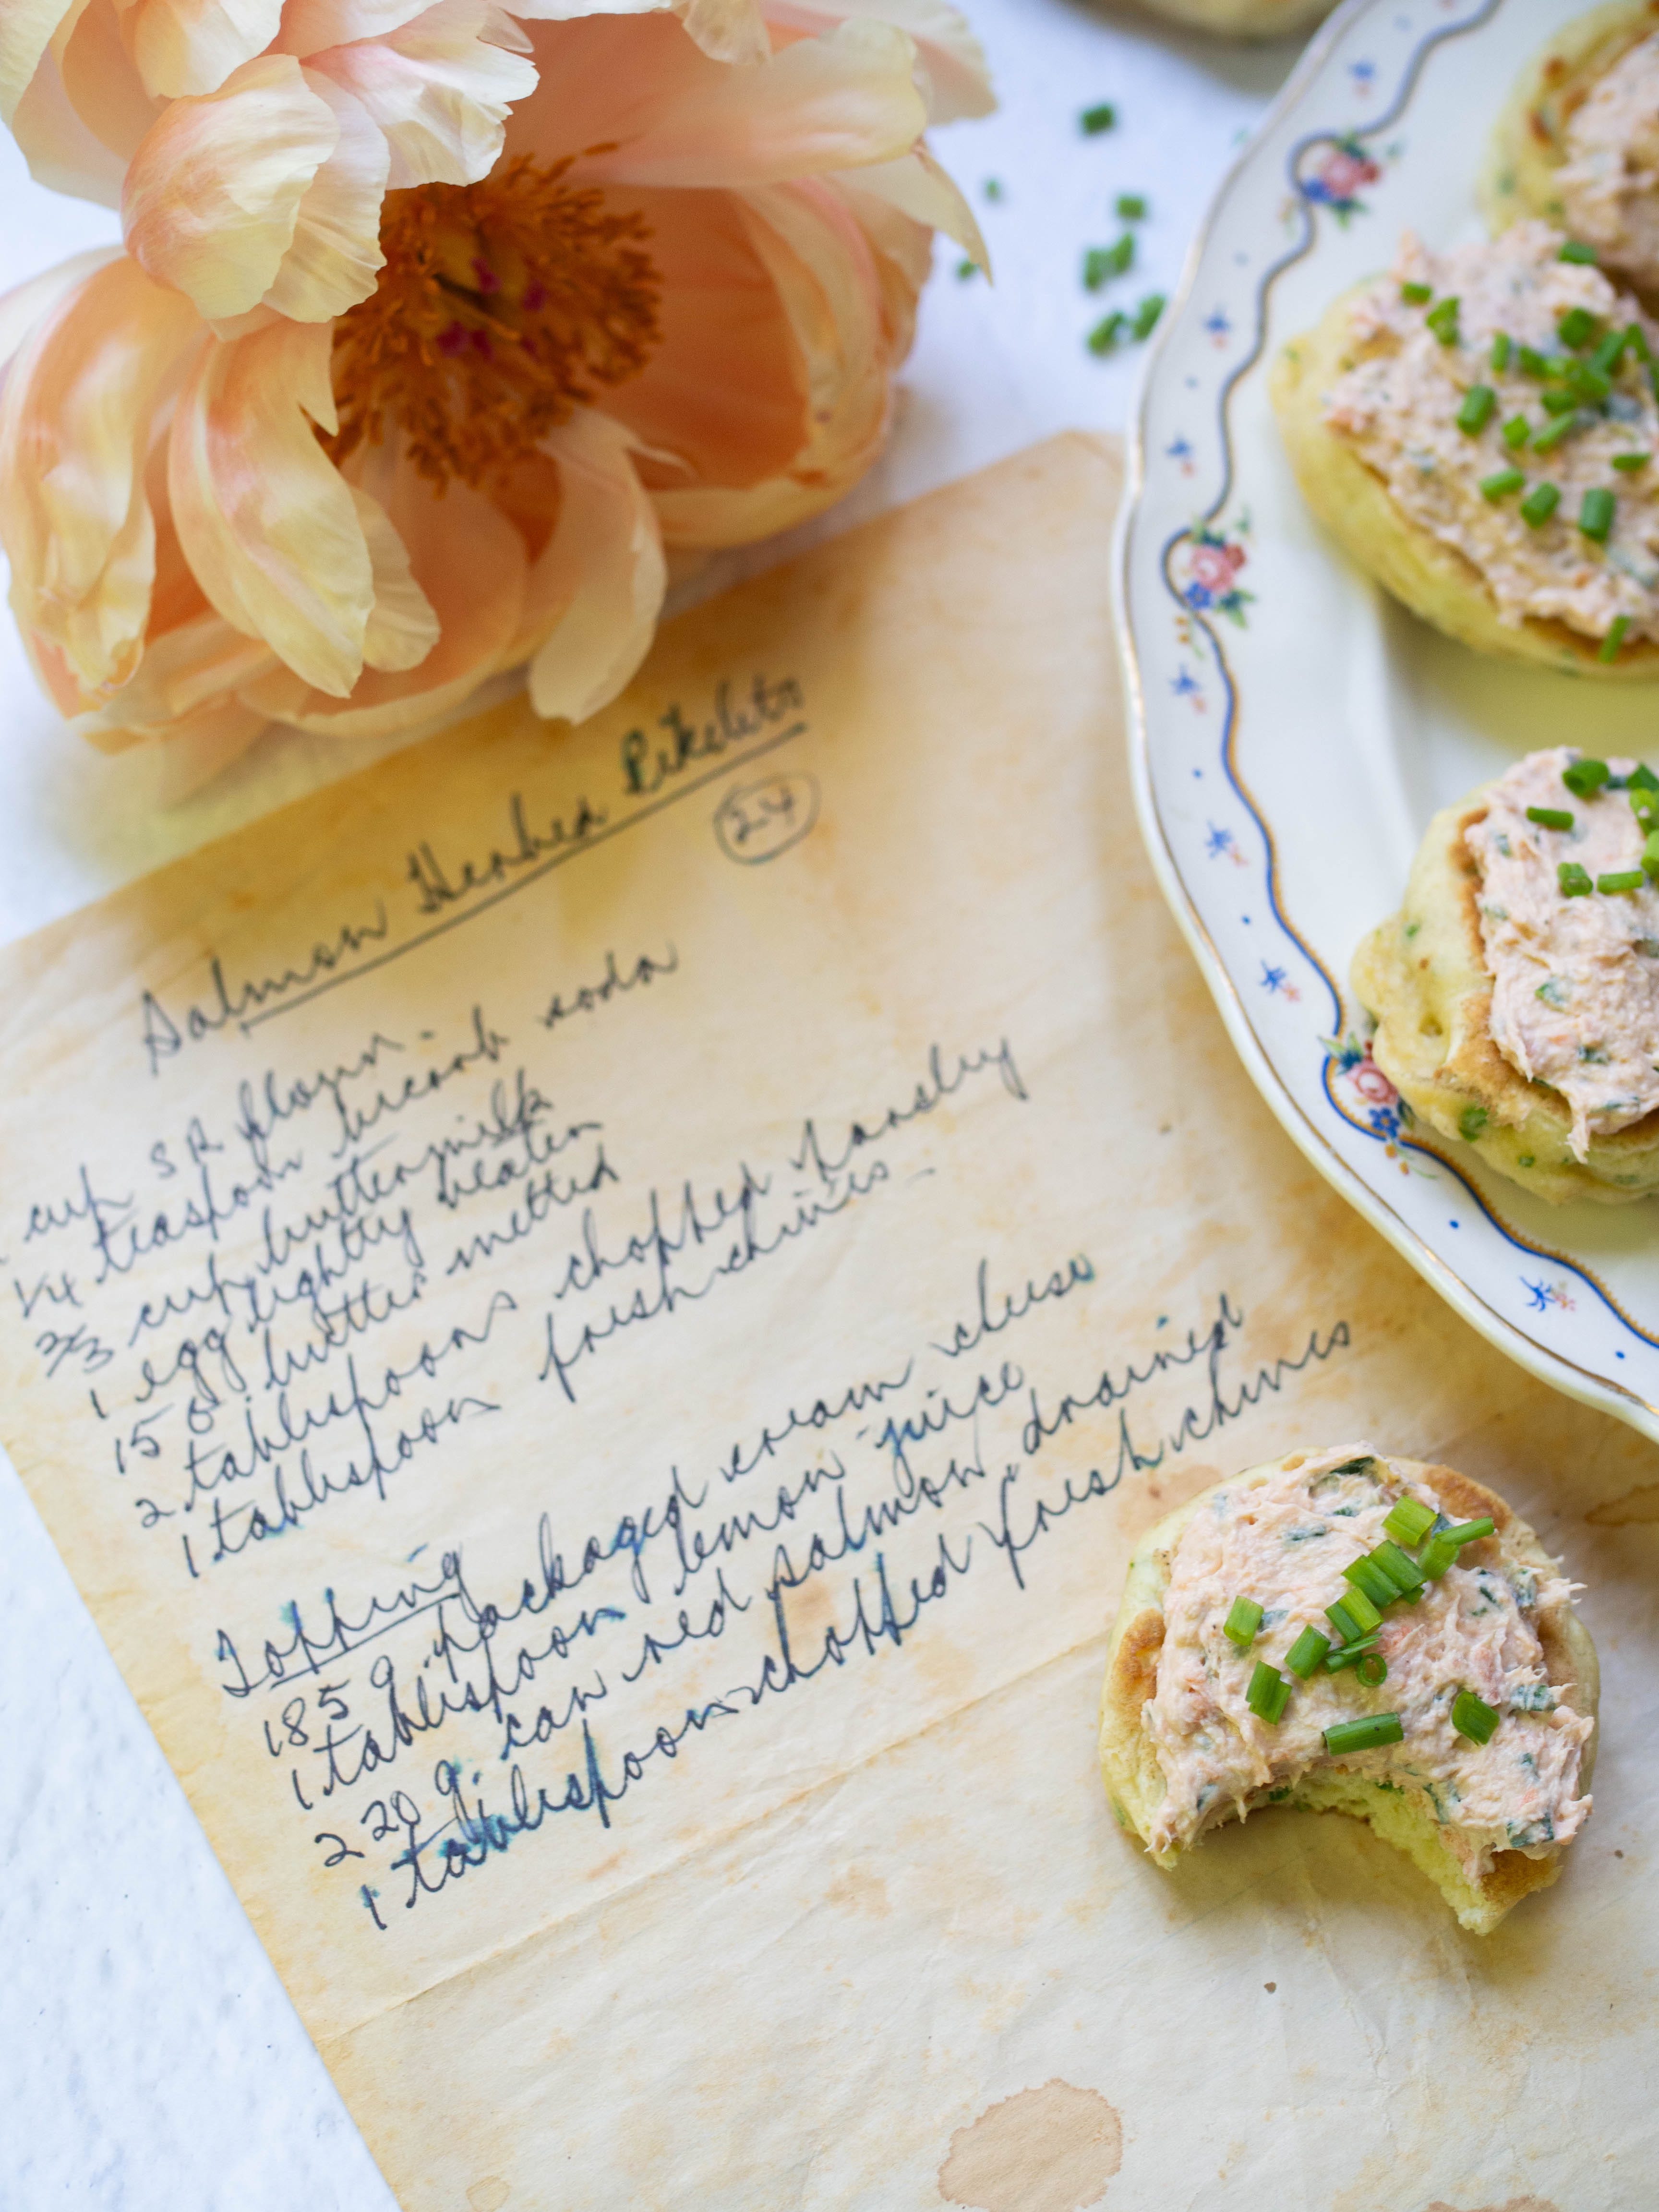 Salmon Herbed Pikelets
24
cup SR flour
1/4 teaspoon bicarb soda
2/3 cup buttermilk
1 egg lightly beaten
15 g butter melted
2 tablespoons chopped parsley
1 tablespoon fresh chives
Topping
185 g packaged cream cheese
1 tablespoon lemon juice
220 g can red salmon drained
1 tablespoon chopped fresh chives